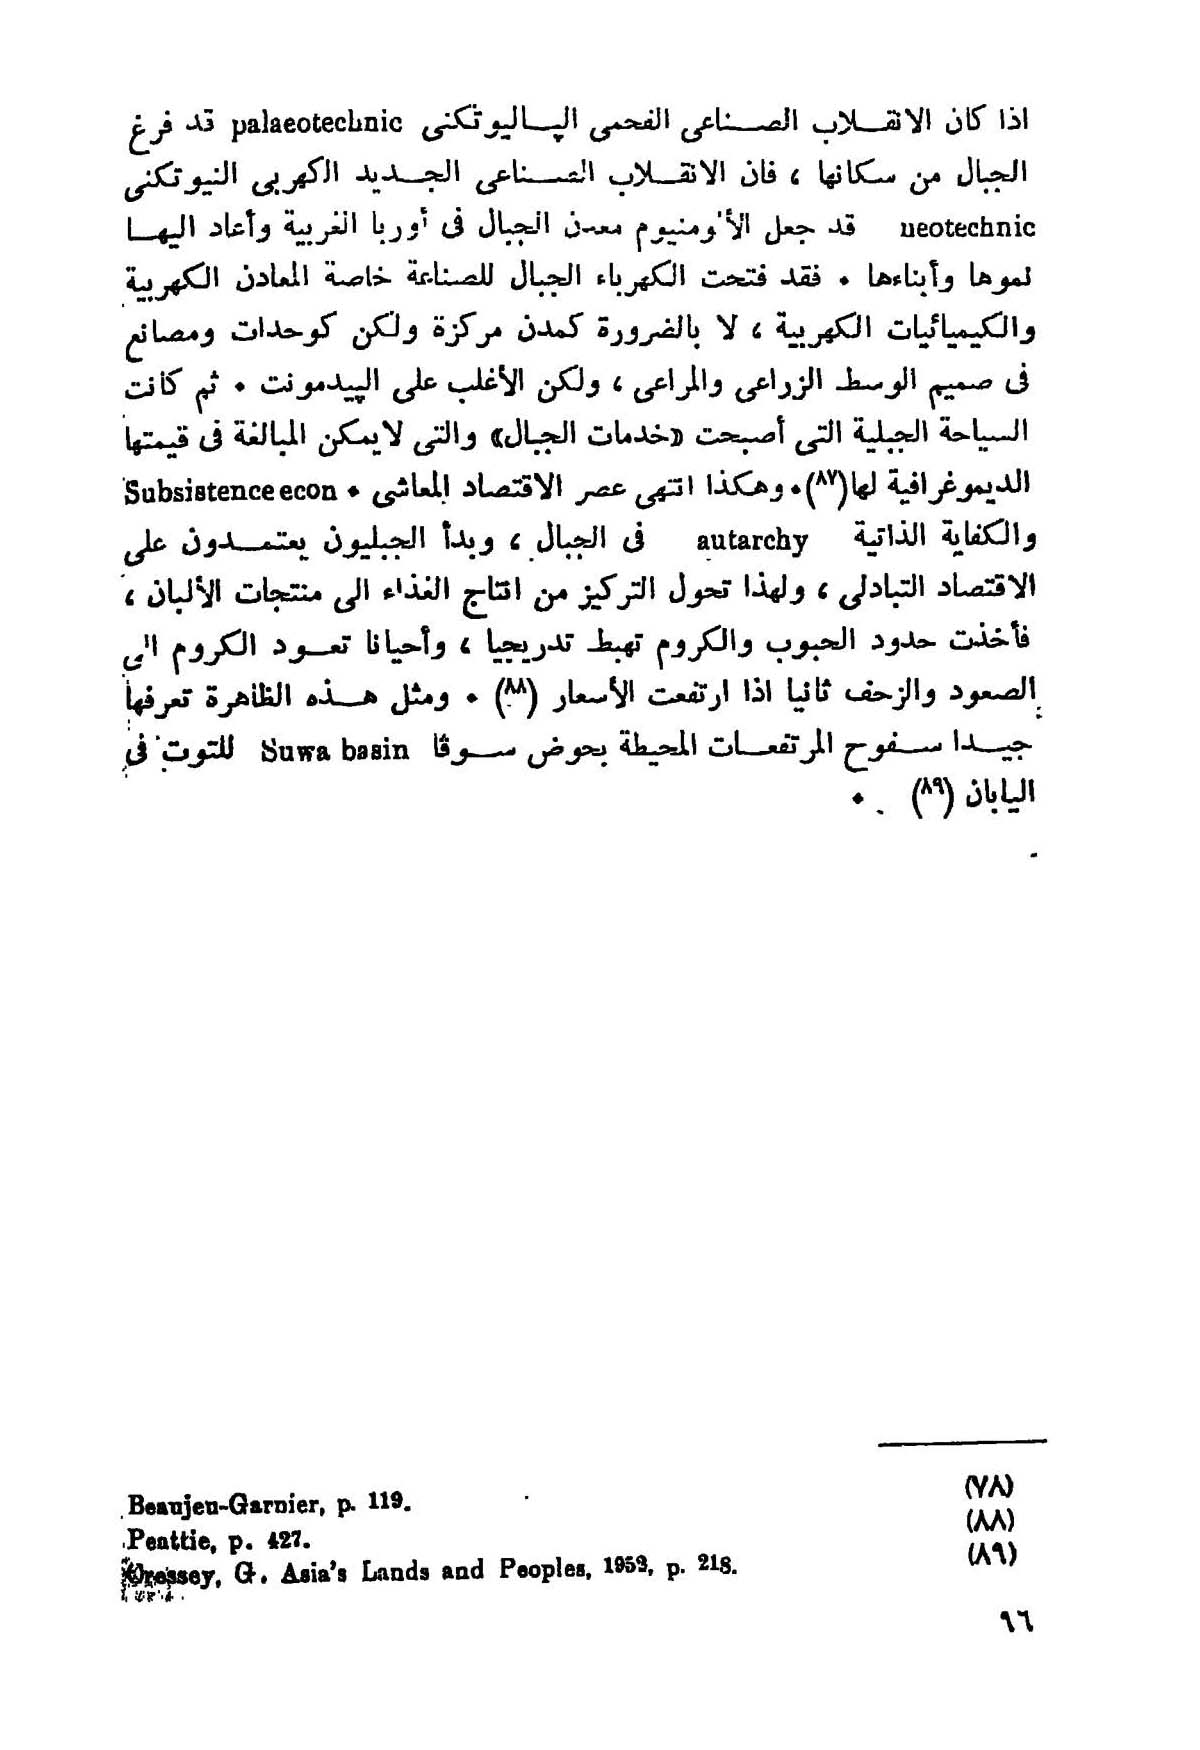 اذا كان الانقلاب الصناعى الفحمى الپاليوتكنى palaeotechnic قد فرغ
الجبال من سكانها ، فان الانقلاب الصناعى الجديد الكهربى النيوتكنى
neotechnic قد جعل الألومنيوم معدن الجبال فى أوربا الغربية وأعاد اليها
نموها وأبناءها • فقد فتحت الكهرباء الجبال للصناعة خاصة المعادن الكهربية
والكيميائيات الكهربية ، لا بالضرورة كمدن مركزة ولكن كوحدات ومصانع
فى صميم الوسط الزراعى والمراعى ، ولكن الأغلب على الپيدمونت • ثم كانت
السياحة الجبلية التى أصبحت «خدمات الجبال» والتى لايمكن المبالغة فى قيمتها
الديموغرافية لها(٨٧)• وهكذا انتهى عصر الاقتصاد المعاشى • Subsistence econ
والكفاية الذاتية autarchy فى الجبال ، وبدأ الجبليون يعتمدون على
الاقتصاد التبادلى ، ولهذا تحول التركيز من انتاج الغذاء الى منتجات الألبان ،
فأخذت حدود الحبوب والكروم تهبط تدريجيا ، وأحيانا تعود الكروم الى
الصعود والزحف ثانيا اذا ارتفعت الأسعار (٨٨) • ومثل هذه الظاهرة تعرفها
جيدا سفوح المرتفعات المحيطة بحوض سوڤا Suwa basin للتوت فى
اليابان (٨٩) •
(٧٨) Beaujeu-Garnier, p. 119.
(٨٨) Peattie, p. 427.
(٨٩) Cressey, G. Asia's Lands and Peoples, 1952, p. 218.
٩٦